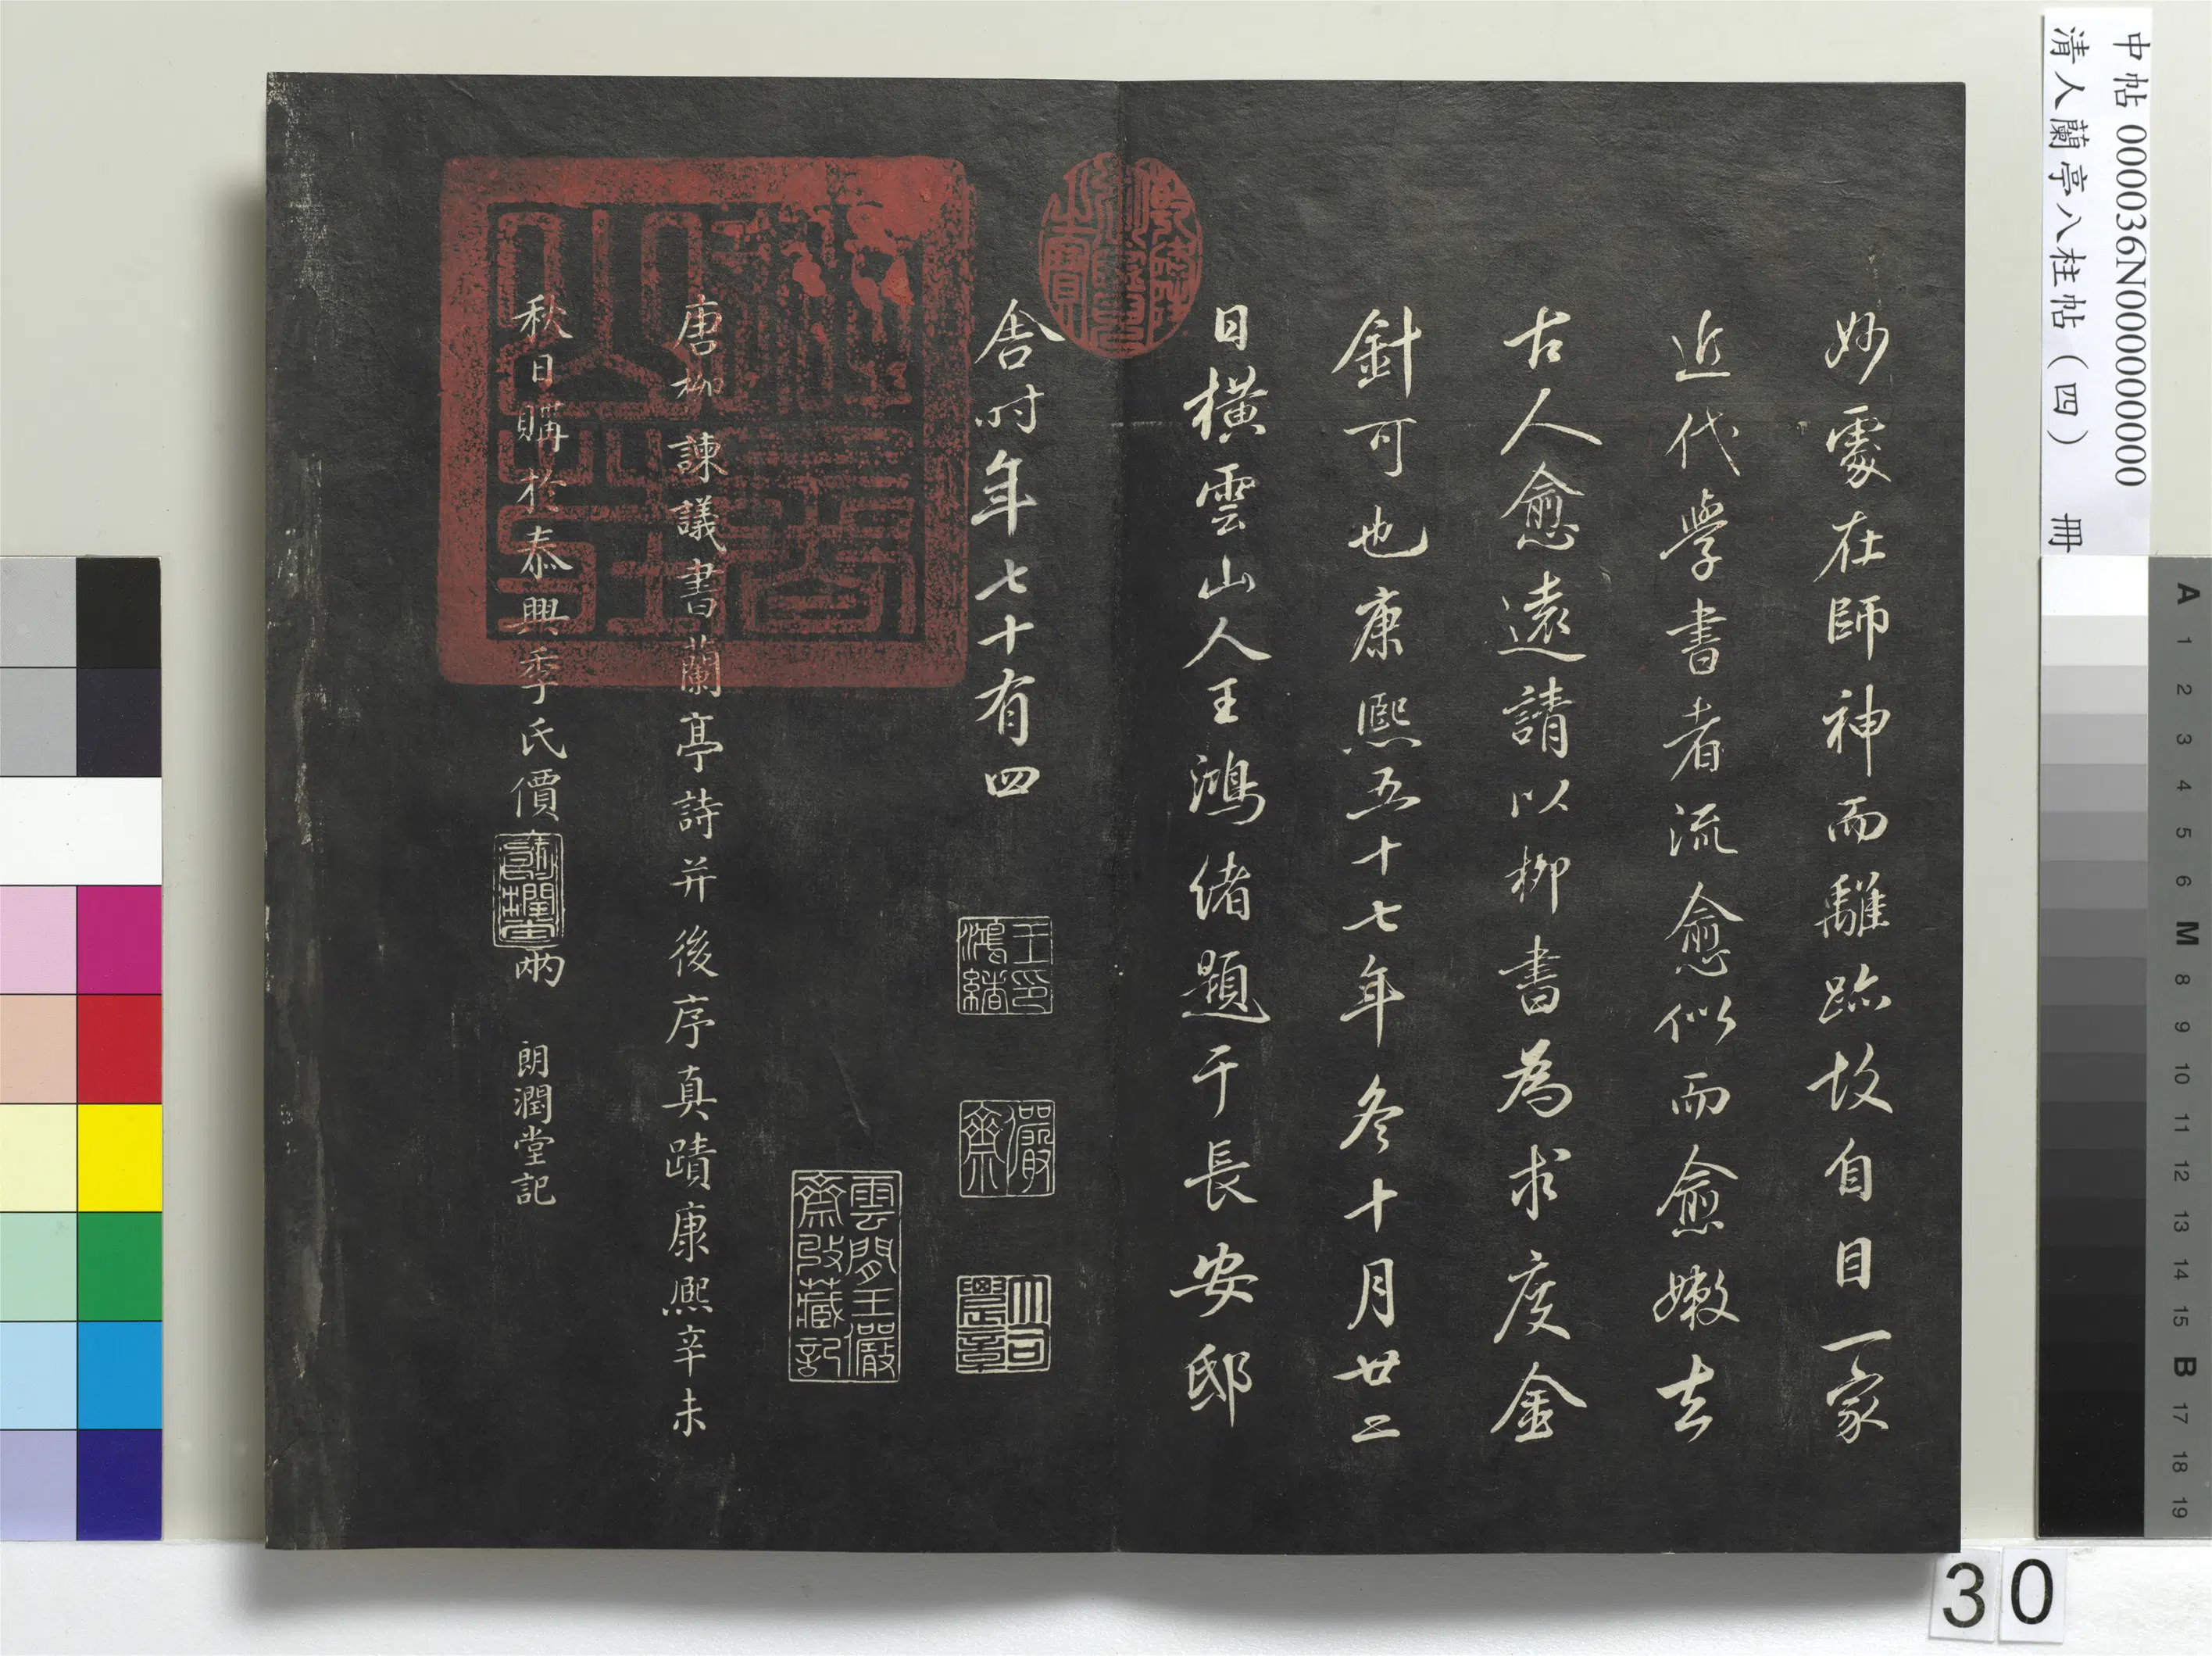 中帖 000036N000000000
清人蘭亭八柱帖（四） 冊
妙處在師神而離跡故自目一家
近代學書者流愈似而愈嫩去
古人愈遠請以柳書為求度金
針可也康熙五十七年冬十月廿二
日橫雲山人王鴻緒題于長安邸
舍時年七十有四
王印鴻緒
儼齋
大司農章
雲間王儼齋收藏記
唐柳諫議書蘭亭詩并後序真蹟康熙辛未
秋日購於泰興季氏價
兩
朗潤堂記
A 1 2 3 4 5 6 M 8 9 10 11 12 13 14 15 B 17 18 19
30